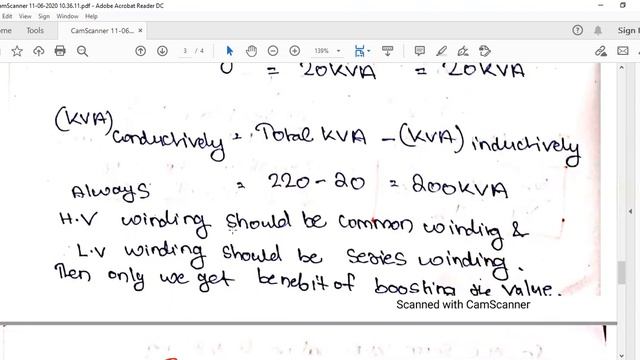 amScanner 11-06-2020 10.36.11.pdf - Adobe Acrobat Reader DC
View Sign Window Help
ome Tools CamScanner 11-06... × Sign
3 / 4 139%
= 20KVA = 20KVA
(KVA) conductively = Total KVA - (KVA) inductively
= 220-20 = 200KVA
Always
H.V winding should be common winding &
L.V winding should be series winding.
Then only we get benebit of boosting the value.
Scanned with CamScanner